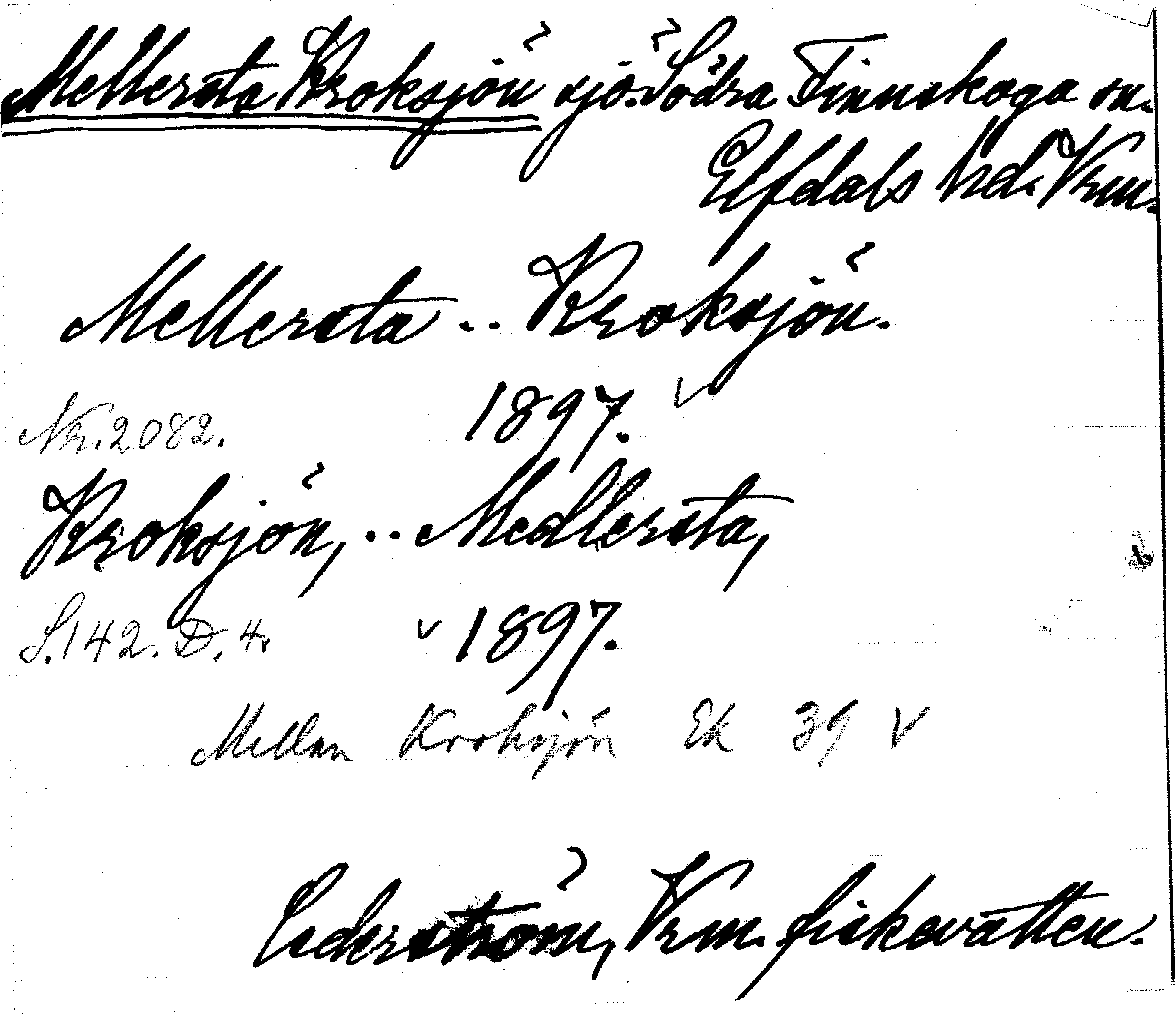 Mellersta Kroksjön sjö. Södra Finnskoga sn.
Elfdals hd. Vrm.
Mellersta .. Kroksjön.
Nr. 2082. 1897. V
Kroksjön, .. Medlersta,
S. 142. D. 4. v 1897.
Mellan Kroksjön Ek 39 V
Cederström, Vrm. fiskevatten.